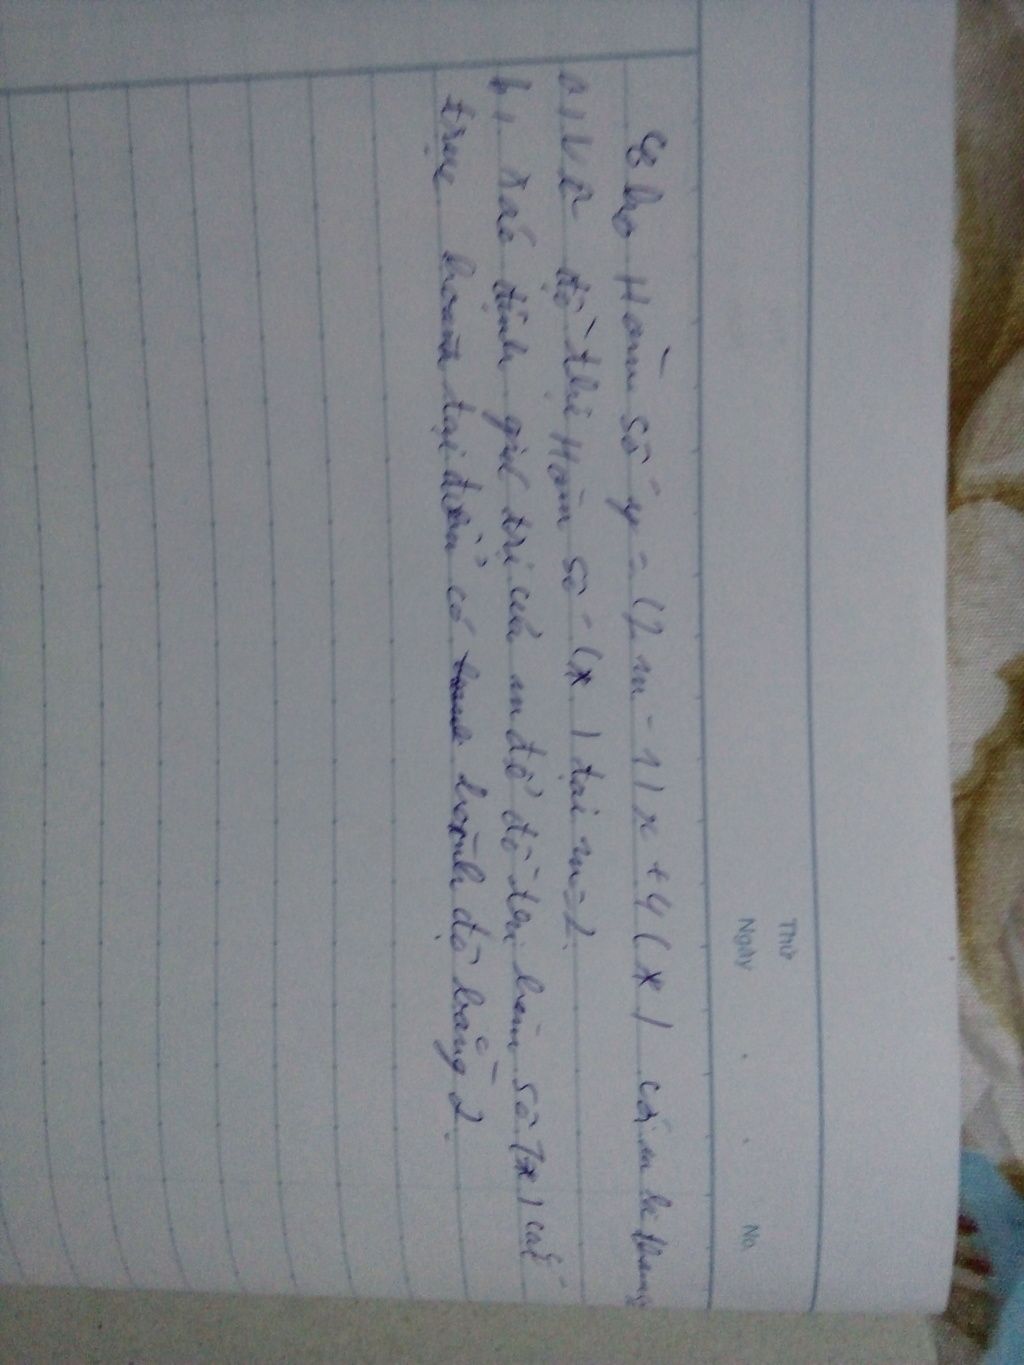 Thứ
Ngày . . No.
Cho Hàm số y = (2m - 1)x + 4 (*) có m là tham
a, Vẽ đồ thị Hàm số (*) tại m = 2.
b, Xác định giá trị của m để đồ thị hàm số (*) cắt
trục hoành tại điểm có hoành độ bằng 2.